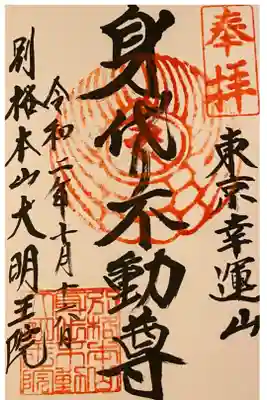 奉拝
東京幸運山
身代不動尊
令和二年十月十六日
別格本山大明王院